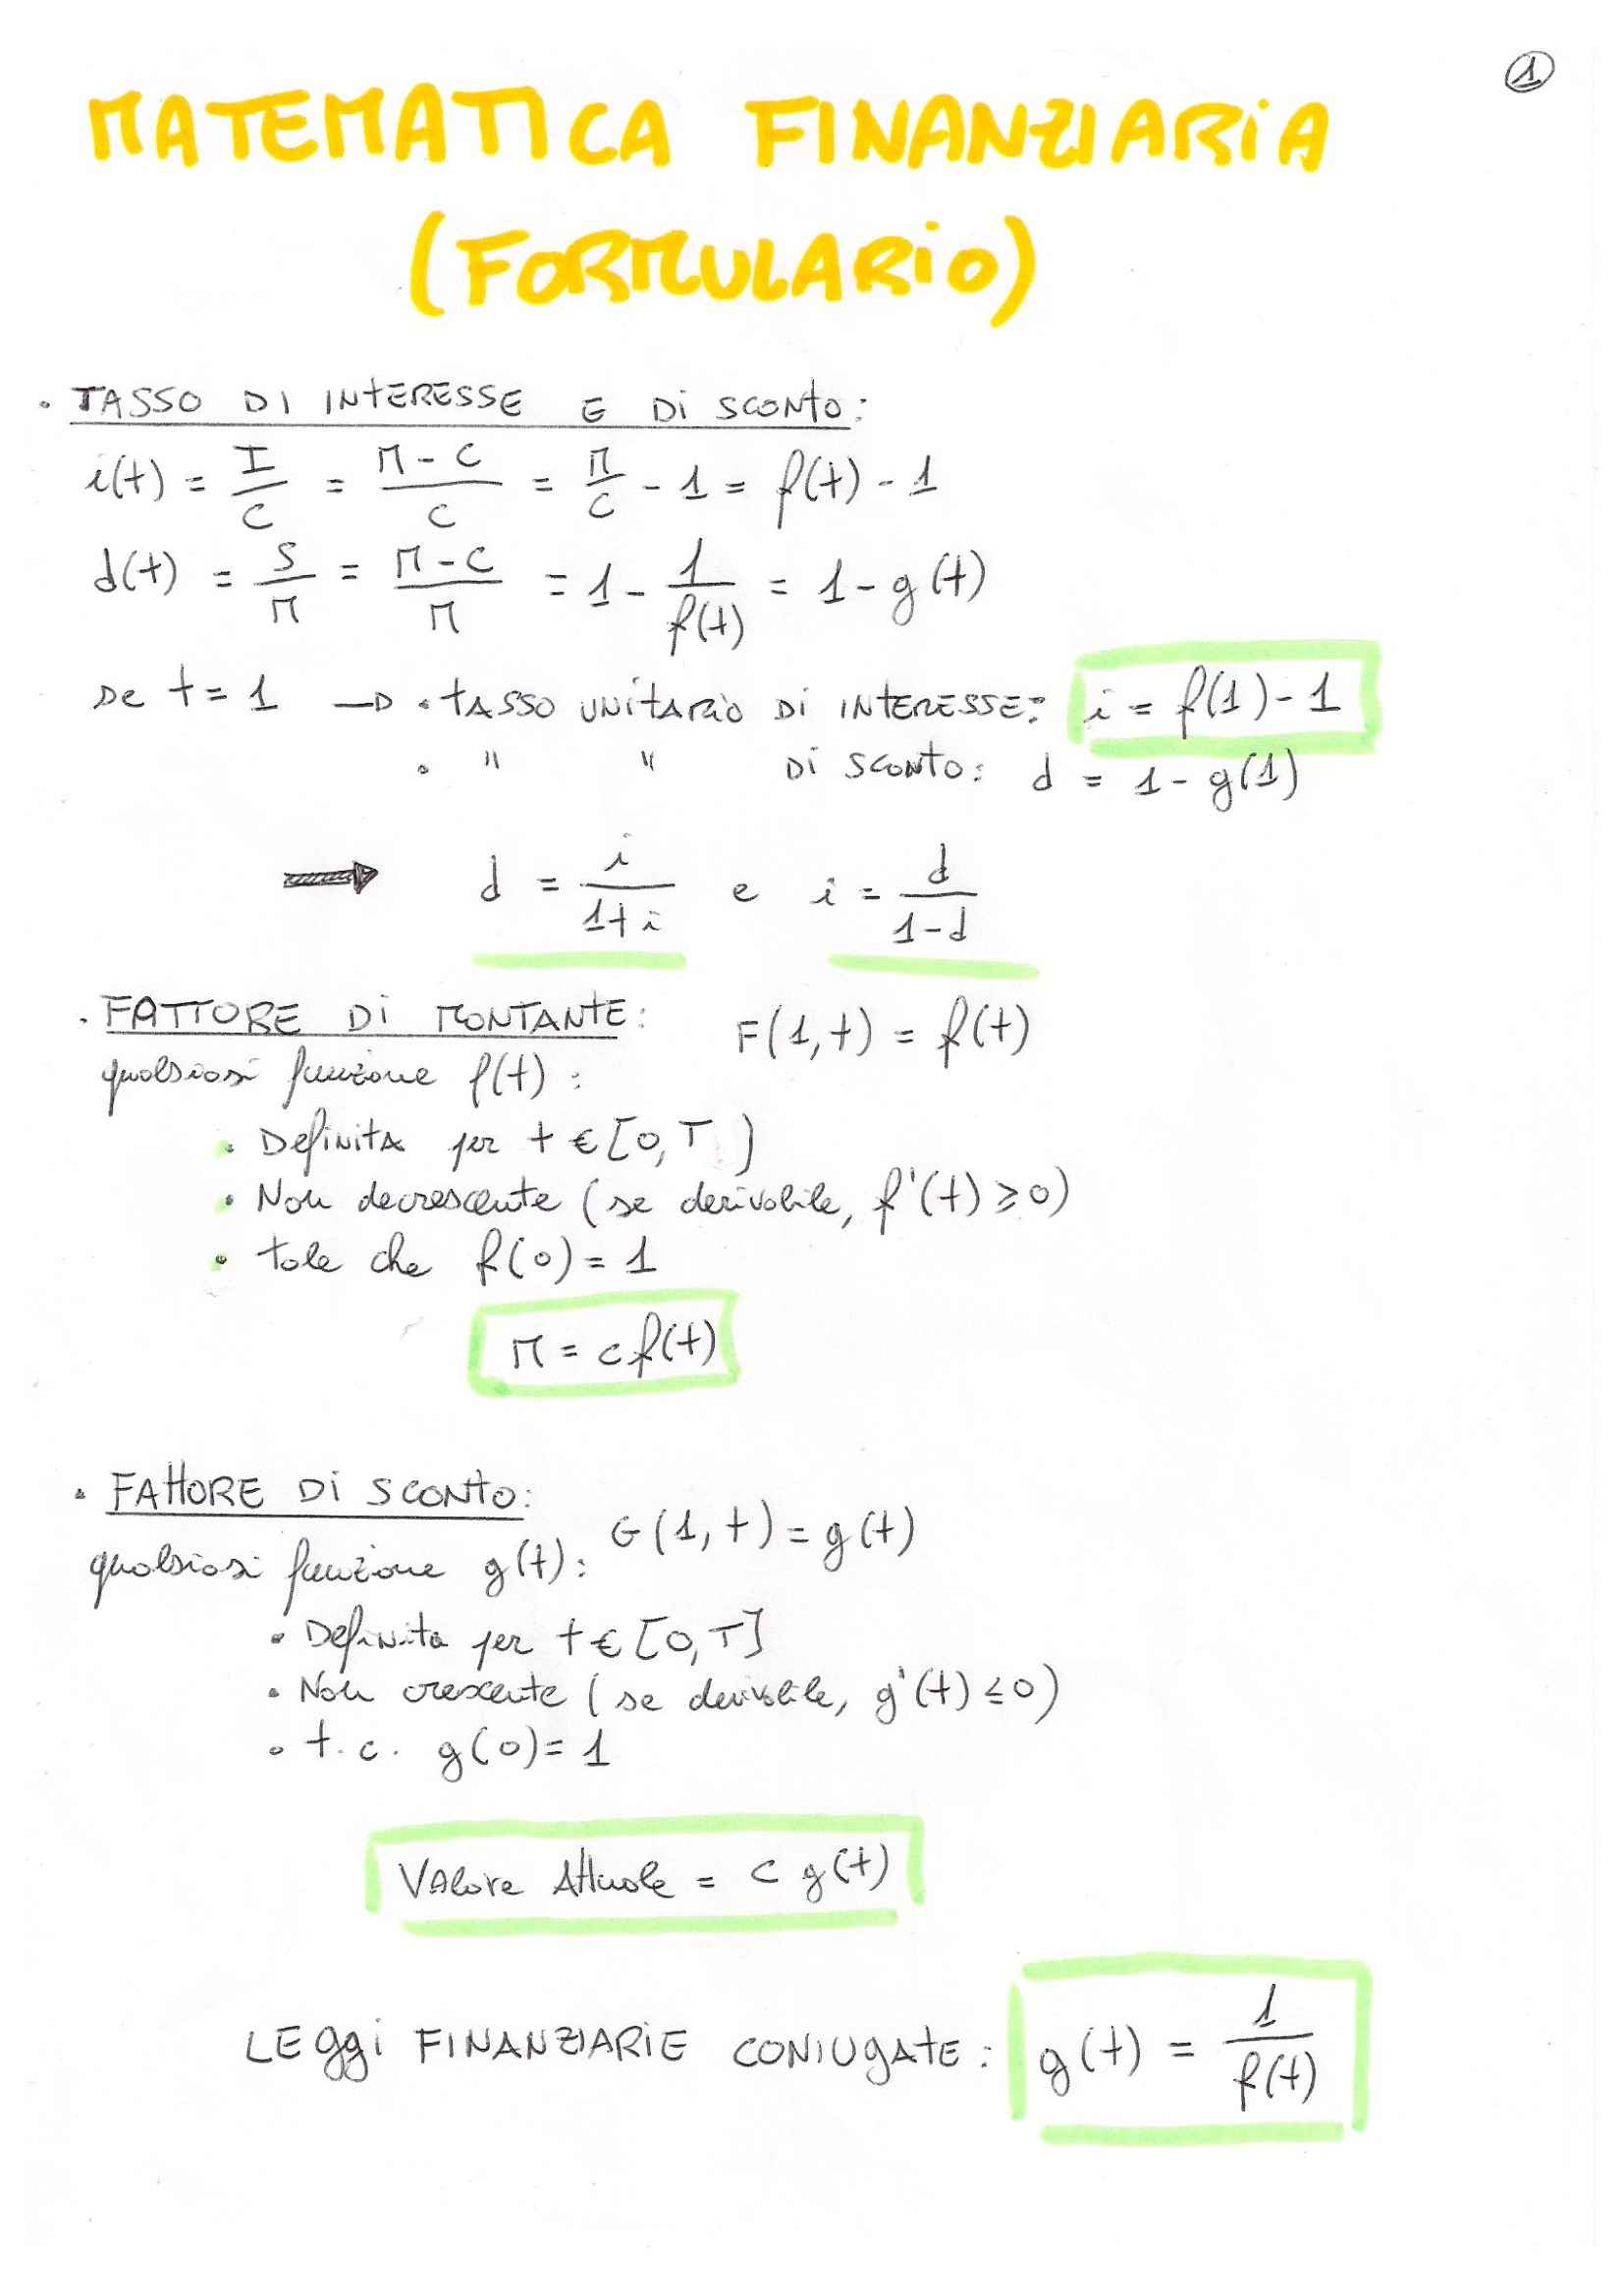 ①
MATEMATICA FINANZIARIA
(FORMULARIO)
• TASSO DI INTERESSE E DI SCONTO:
i(t) = I/C = (M - C)/C = M/C - 1 = f(t) - 1
d(t) = S/M = (M - C)/M = 1 - 1/f(t) = 1 - g(t)
se t = 1 → • TASSO UNITARIO DI INTERESSE: i = f(1) - 1
• " " DI SCONTO: d = 1 - g(1)
⇒ d = i/(1+i) e i = d/(1-d)
• FATTORE DI MONTANTE: F(1,t) = f(t)
qualsiasi funzione f(t):
• Definita per t ∈ [0,T)
• Non decrescente (se derivabile, f'(t) ≥ 0)
• tale che f(0) = 1
M = C f(t)
• FATTORE DI SCONTO:
qualsiasi funzione g(t): G(1,t) = g(t)
• Definita per t ∈ [0,T]
• Non crescente (se derivabile, g'(t) ≤ 0)
• t.c. g(0) = 1
Valore Attuale = C g(t)
LEGGI FINANZIARIE CONIUGATE: g(t) = 1/f(t)